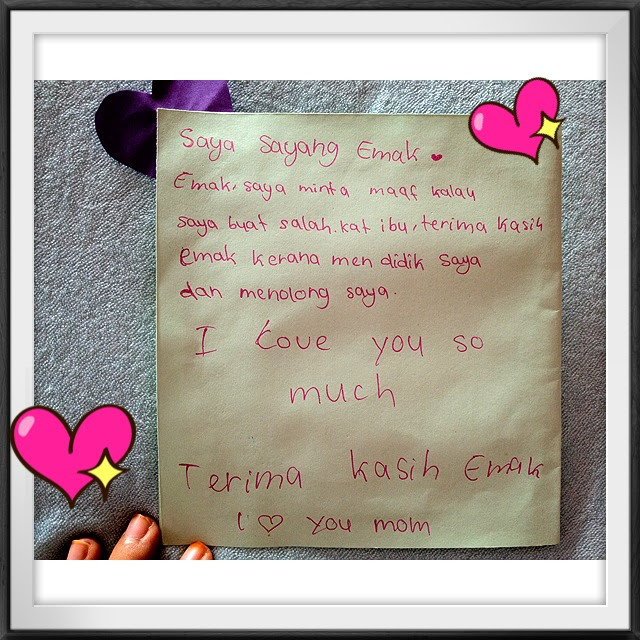 Saya Sayang Emak ♥
Emak, saya minta maaf kalau
saya buat salah. kat ibu, terima kasih
Emak kerana men didik saya
dan menolong saya.
I Love you so
much
Terima kasih Emak
I ♡ you mom